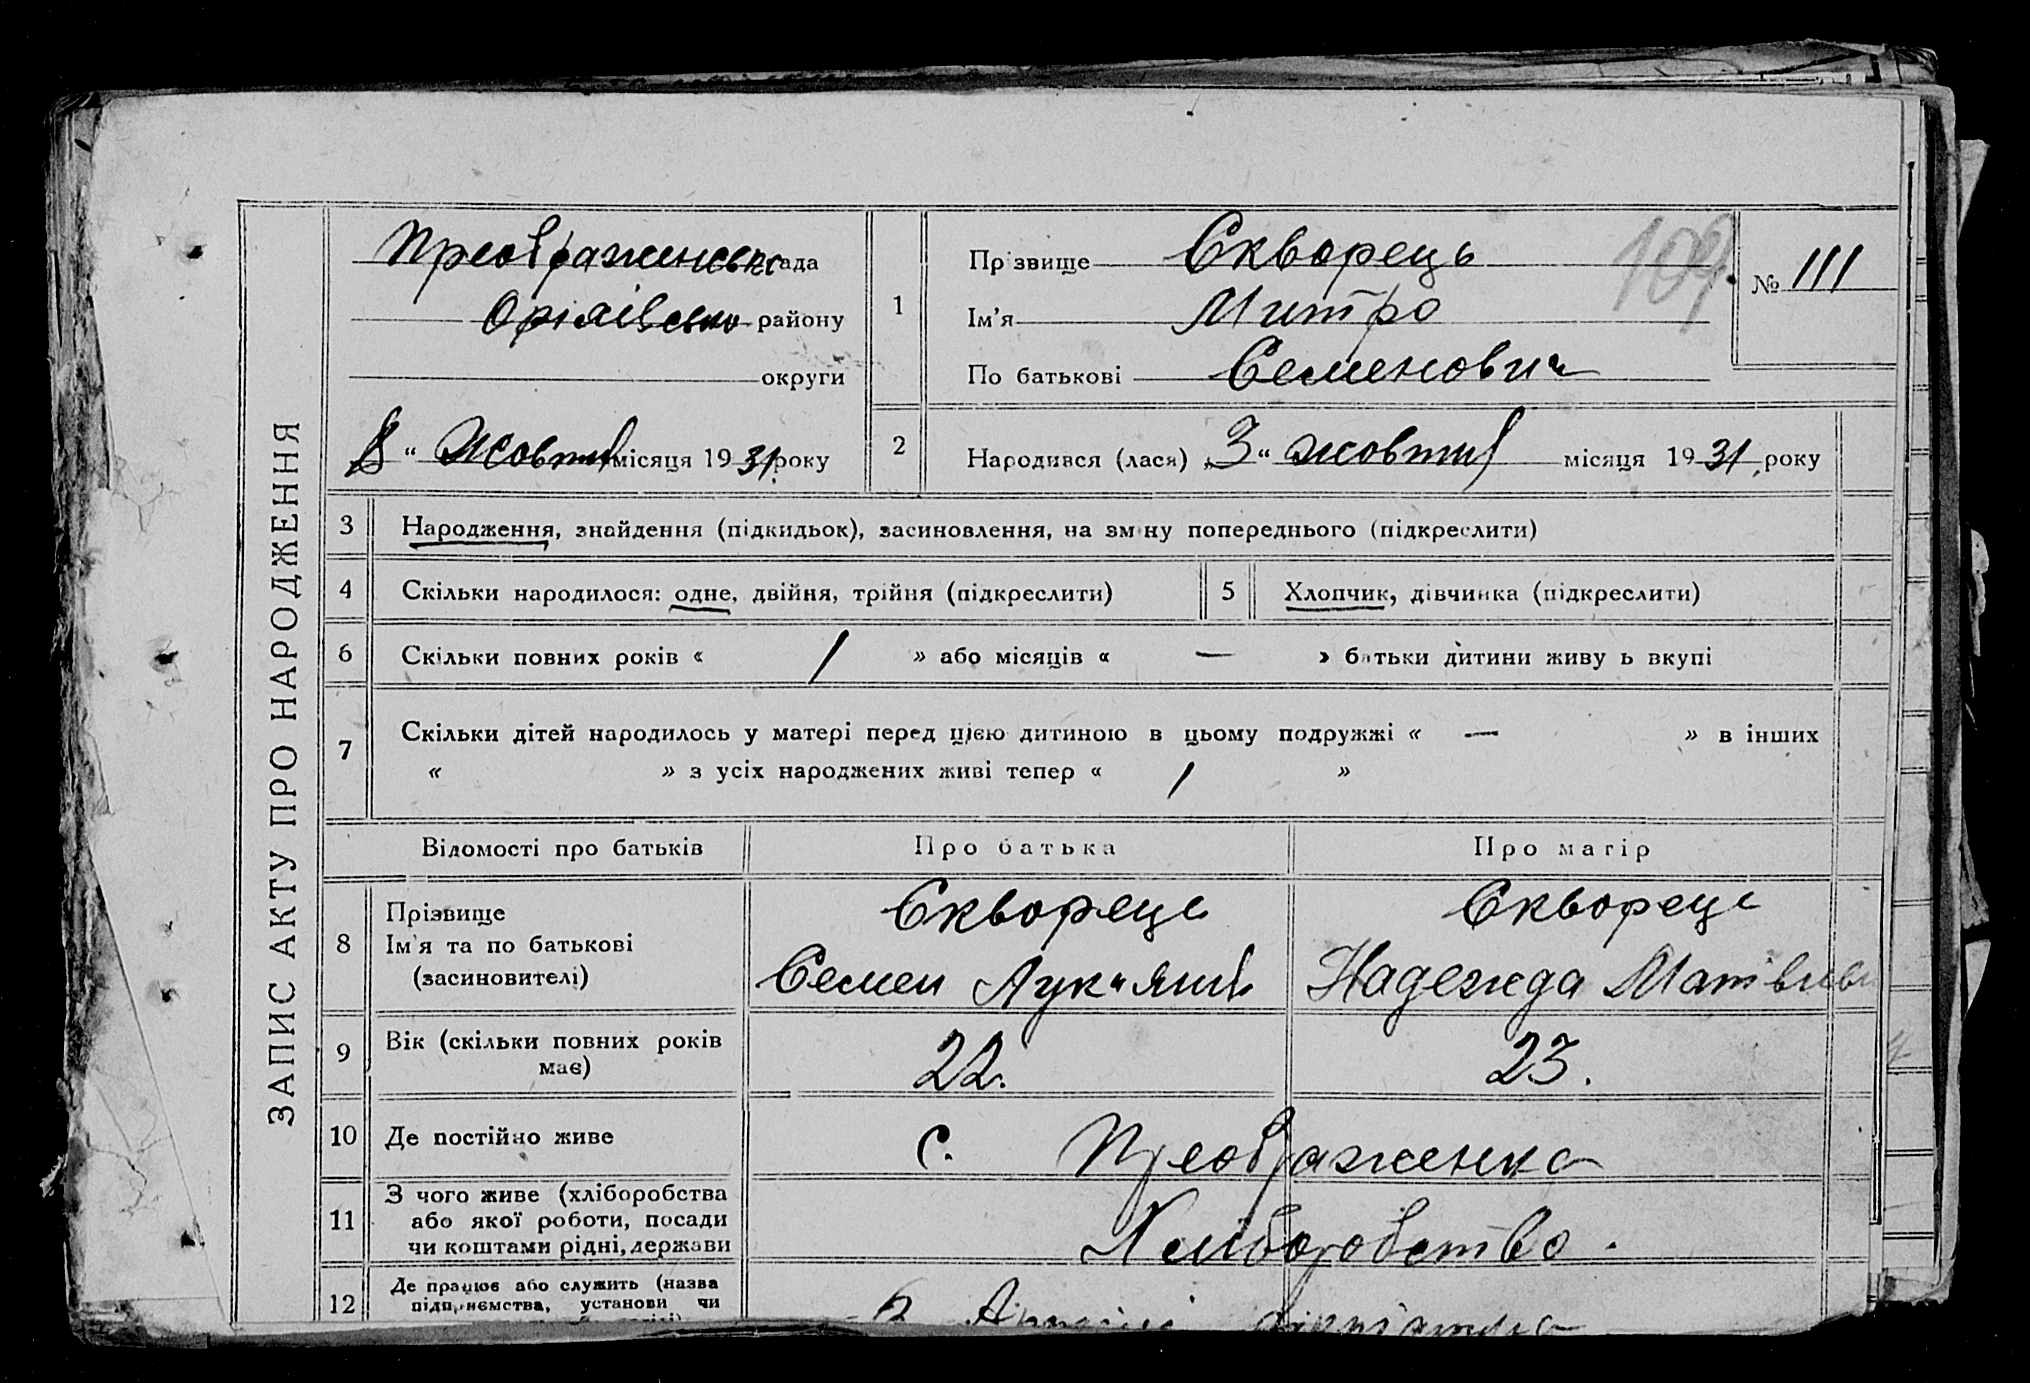 ЗАПИС АКТУ ПРО НАРОДЖЕННЯ
Преображенська рада
Оріхівсько району
округи
8 " Жовтня місяця 1931 року
1
Прізвище Скворець
Ім'я Митро
По батькові Семенович
109
№ 111
2 Народився (лася) „3" жовтня місяця 1931 року
3 Народження, знайдення (підкидьок), засиновлення, на зміну попереднього (підкреслити)
4 Скільки народилося: одне, двійня, трійня (підкреслити)
5 Хлопчик, дівчинка (підкреслити)
6 Скільки повних років « 1 » або місяців « — » батьки дитини живу ь вкупі
7 Скільки дітей народилось у матері перед цією дитиною в цьому подружжі « — » в інших
« » з усіх народжених живі тепер « 1 »
Відомості про батьків Про батька Про матір
8 Прізвище Скворець Скворець
Ім'я та по батькові
(засиновителі) Семен Лук'ян Надежда Матвієв
9 Вік (скільки повних років
має) 22. 23.
10 Де постійно живе с. Преображенка
11 З чого живе (хліборобства
або якої роботи, посади
чи коштами рідні, держави Хліборобство.
12 Де працює або служить (назва
підприємства, установи чи